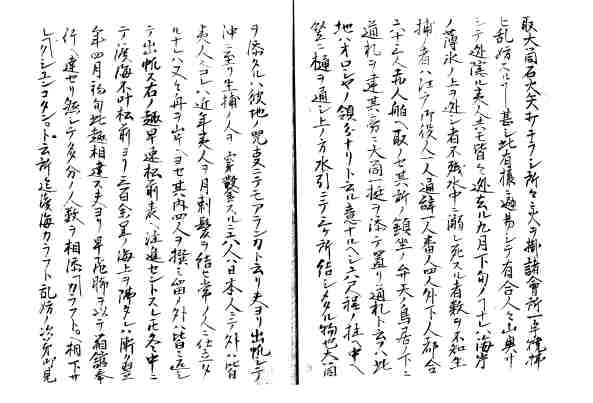 取大筒石火矢打チラシ所々ニ火ヲ掛諸會所一年燒拂
ヒ乱妨スル
甚シ此有樣ニ過易シテ有合人々山奥
シテ逃隱ル夷人共モ皆々逃去ル九月下旬ノコナレハ海岸
ノ薄氷ノ上ヲ逃シ者不殘水中ニ溺レ死スル者數ヲ不知生
捕ノ者ハ江戸御役人一人通辞一人番人四人外下人都合
二十三人赤人舩ヘ取ノセ其所ノ鎮坐ノ弁天ノ鳥居ノ下ニ
通札ヲ建其旁ニ大筒一挺ヲ添テ置リ通札ト云ハ此
地ハオロシヤノ領分ナリト云ル意ナルヘシ
程ノ柱ヘ中ヘ
竪ニ樋ヲ通シ上ノ方水引ニテ三ケ所結シメタル物也大筒
ヲ添タルハ彼地ノ咒
ニテモアランカト云リ夫ヨリ出帆シテ
沖ニ至リ生捕ノ人ヲ穿鑿スルニ六八ハ日本人ニテ外ハ皆
夷人ニコレハ近年夷人ヲ月剃髪ヲ結セ常ノ人ニ仕立タ
ルナレハ又々舟ヲ岸ヘヨセ其内四人ヲ撰ミ留ノ外ハ皆々返シ
テ出帆ス右ノ趣早速松前表ヘ注進セントスレ𪜈冬中ニ
テ渡海不叶松前ヨリ三百余里ノ海上ヲ隔タレハ漸ク翌
年四月初旬此趣相達ス夫ヨリ早
飛脚ヲ以テ箱舘奉
行ヘ達セリ然シテ多分ノ人數ヲ相添カラフトヘ相下サ
レ
シユンコタン
ト云所迄渡海カラフト乱妨ノ次第
見